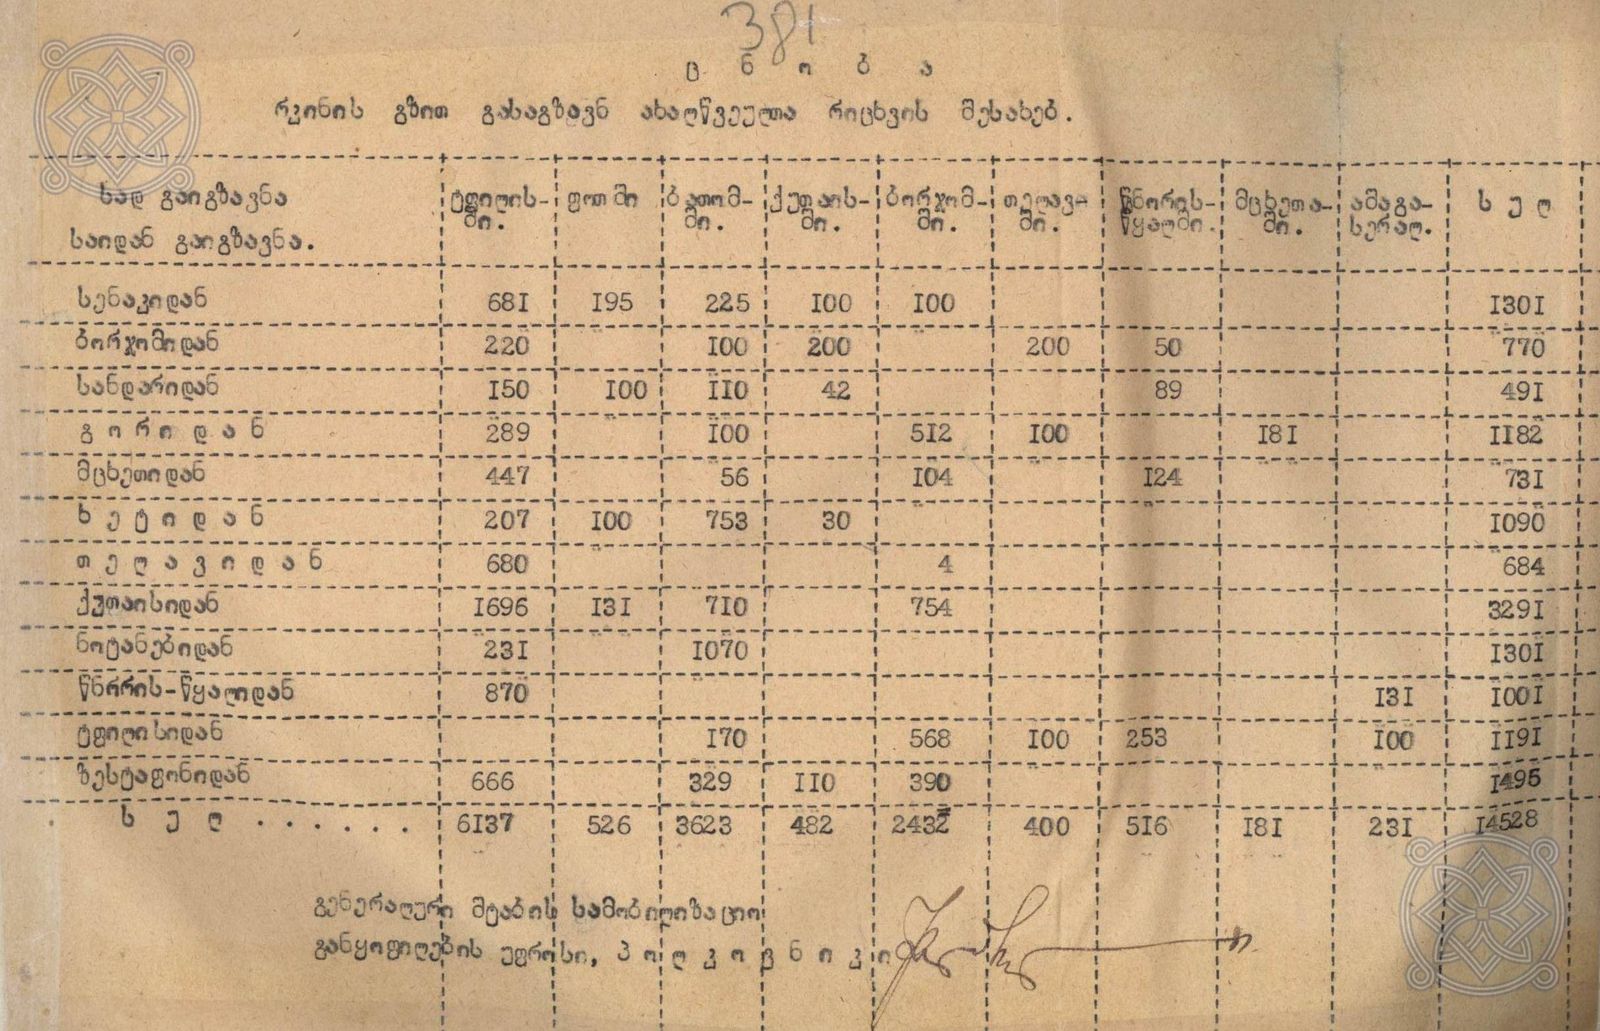 381
ც ნ ო ბ ა
რკინის გზით გასაგზავნ ახალწვეულთა რიცხვის შესახებ.
სად გაიგზავნა
საიდან გაიგზავნა.
ტფილის-
ში.
ფოთში
ბათომ-
ში.
ქუთაის-
ში.
ბორჯომ-
ში.
თელავ-
ში.
წნორის-
წყალში.
მცხეთა-
ში.
ამაგა-
სერალ.
ს უ ლ
სენაკიდან 681 195 225 100 100 1301
ბორჯომიდან 220 100 200 200 50 770
სანდარიდან 150 100 110 42 89 491
გ ო რ ი დ ა ნ 289 100 512 100 181 1182
მცხეთიდან 447 56 104 124 731
ხ ე ტ ი დ ა ნ 207 100 753 30 1090
თ ე ლ ა ვ ი დ ა ნ 680 4 684
ქუთაისიდან 1696 131 710 754 3291
ნოტანებიდან 231 1070 1301
წნორის-წყალიდან 870 131 1001
ტფილისიდან 170 568 100 253 100 1191
ზესტაფონიდან 666 329 110 390 1495
ს უ ლ . . . . . . 6137 526 3623 482 2432 400 516 181 231 14528
გენერალური შტაბის სამობილიზაციო
განყოფილების უფროსი, პ ო ლ კ ო ვ ნ ი კ ი